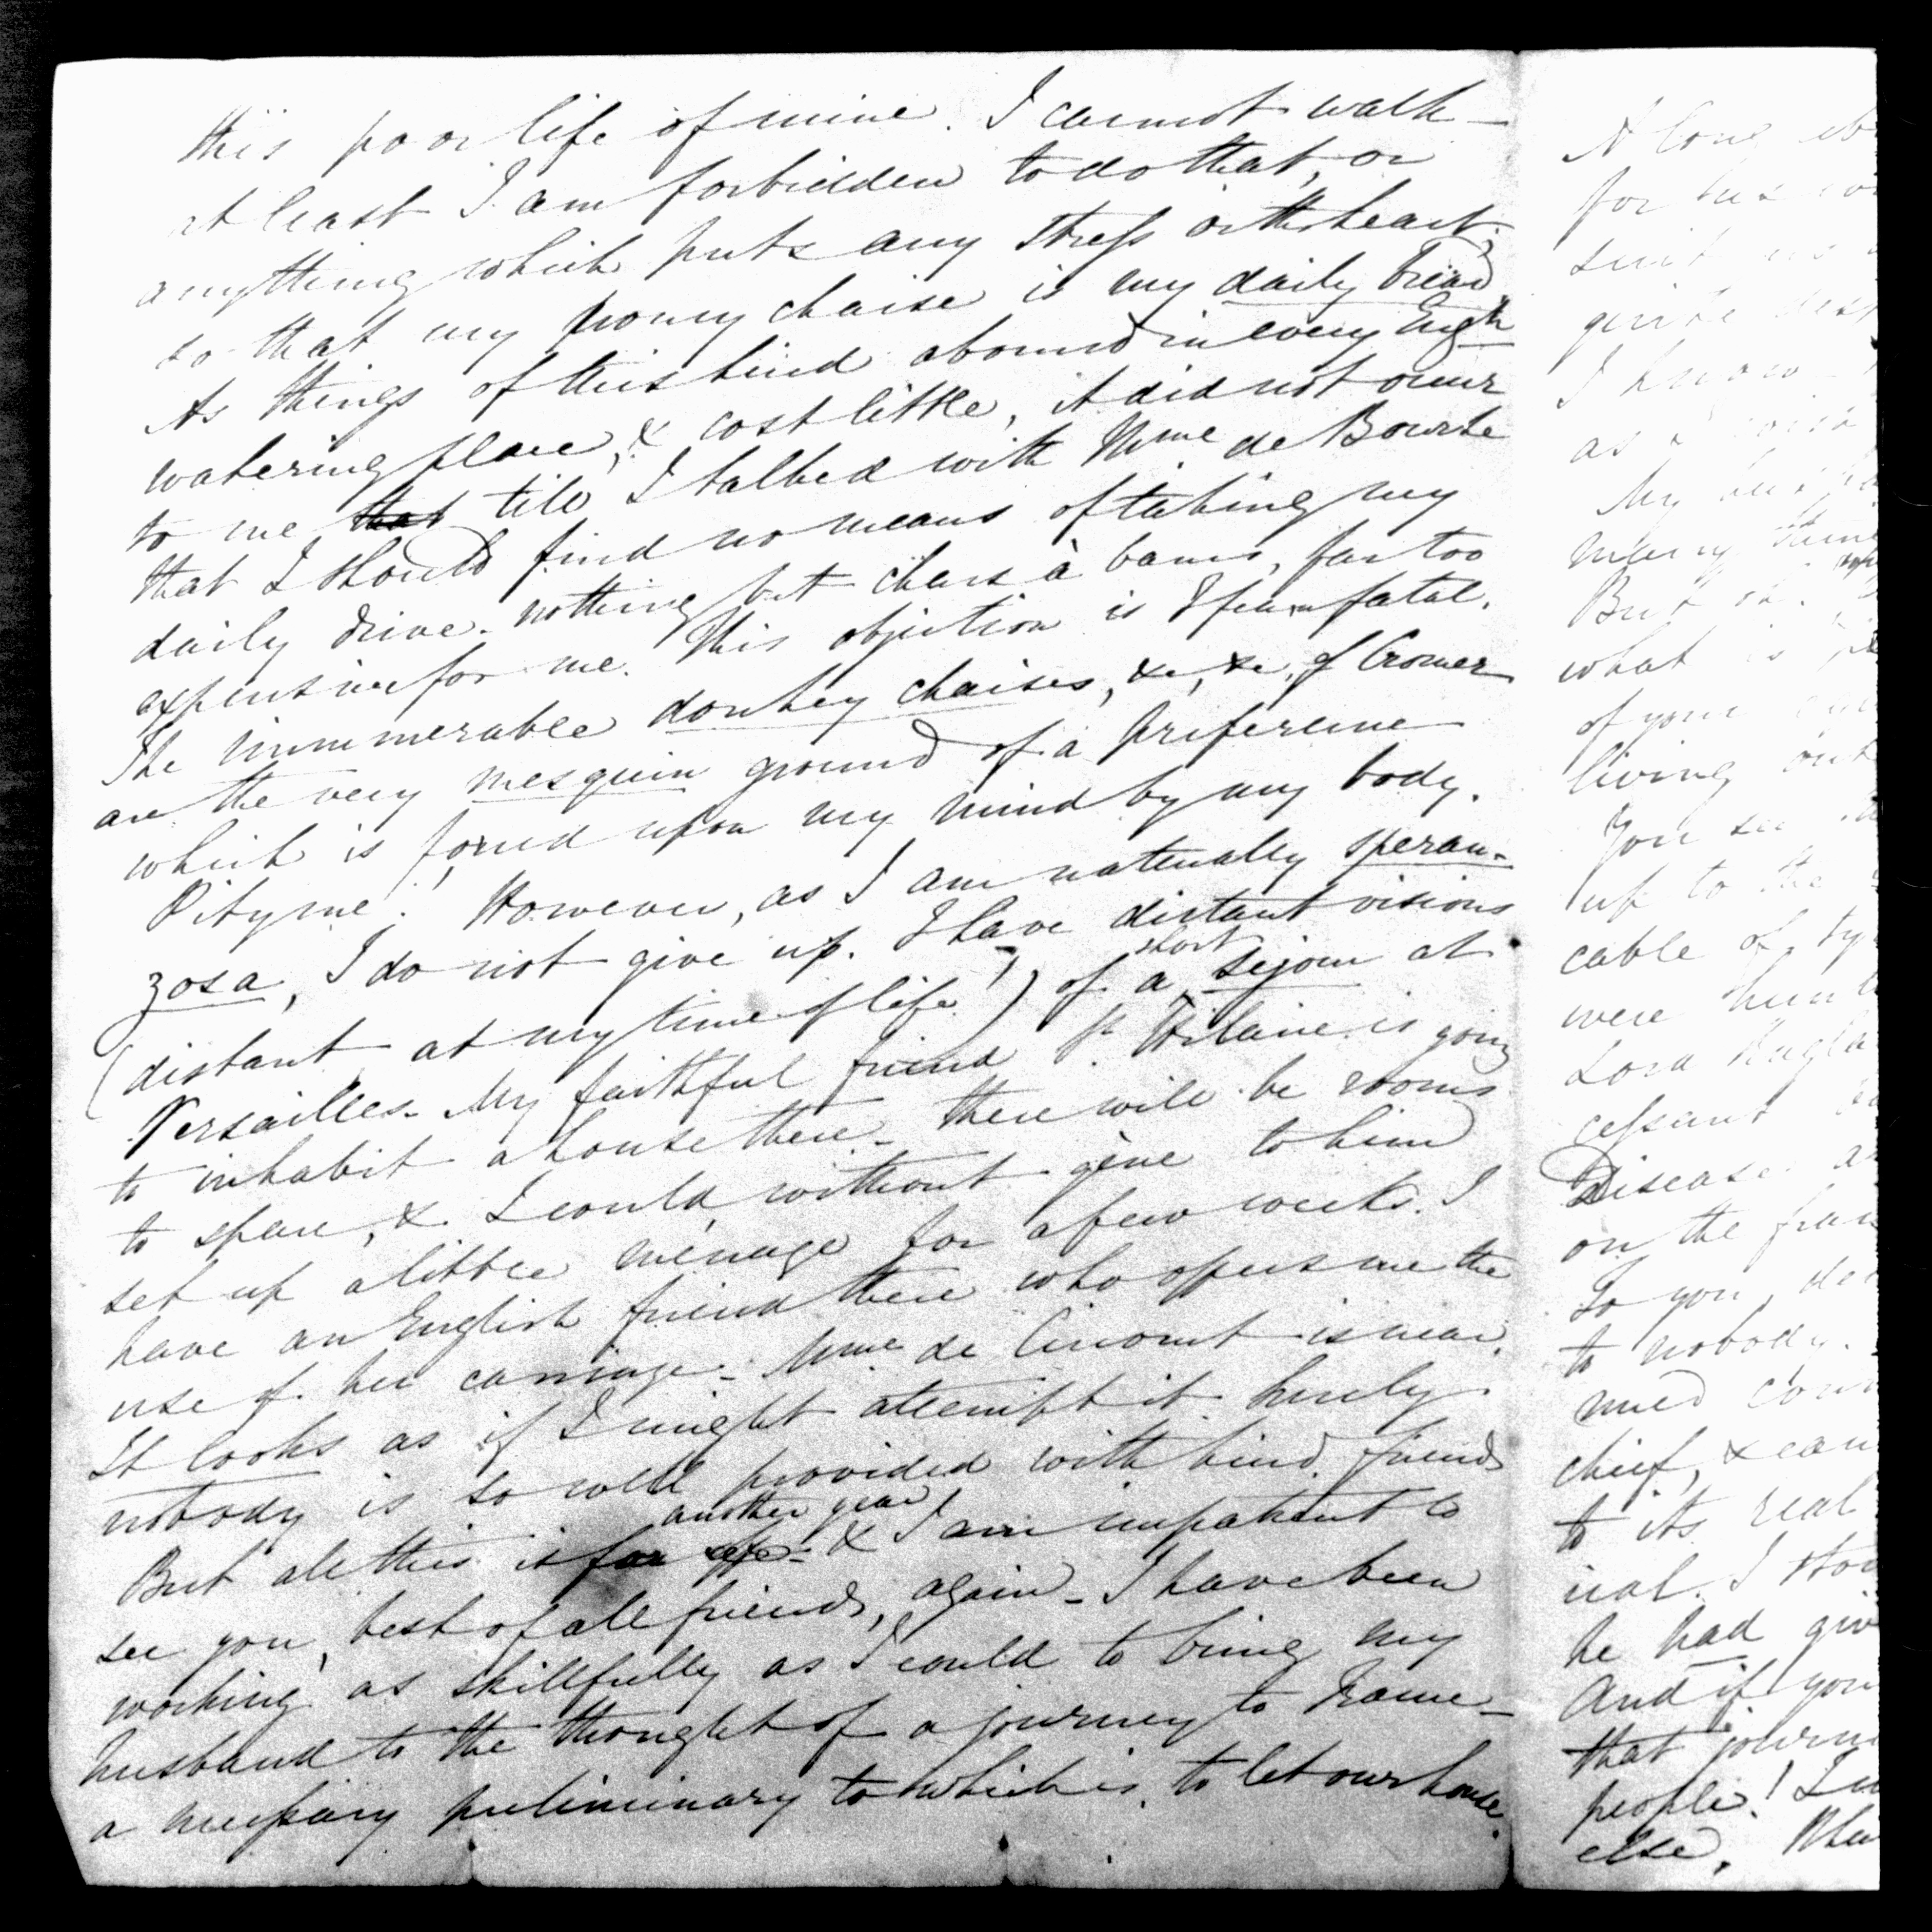 this poor life of mine. I cannot walk –
at least I am forbidden to do that, or
anything which puts any stress on the heart;
so that my poney chaise is my daily bread
As things of this kind abound in every Engh
watering place, & cost little, it did not occur
to me that till I talked with Mme de Bourke
that I should find no means of taking my
daily drive – nothing but chars à bancs, far too
expensive for me. This objection is I fear fatal.
The innumerable donkey chaises, &c, &c, of Cromer
are the very mesquin ground of a preference
which is forced upon my mind by my body.
Pity me! However, as I am naturally speran-
zosa, I do not give up. I have distant visions
(distant at my time of life!) of a short séjour at
Versailles – My faithful friend St Hilaire is going
to inhabit a house there – there will be rooms
to spare, & I could, without gène to him
set up a little ménage for a few weeks. I
have an English friend there who offers me the
use of her carriage – Mme de Circourt is near.
It looks as if I might attempt it. Surely
nobody is so well provided with kind friends
But all this is for another year & I am impatient to
see you, best of all friends, again – I have been
working as skillfully as I could to bring my
husband to the thought of a journey to France –
a necessary preliminary to which is to let our house.
A long
for his
sent us
quite
I know
as a
My
many
But
what is
of your
living out
You see
up to the
cable of
were
Lord Ragla
cessant
Disease
on the
So you
to nobody.
mud
chief, & can
to its real
ual. I
he had giv
And if you
that journ
people!
else.